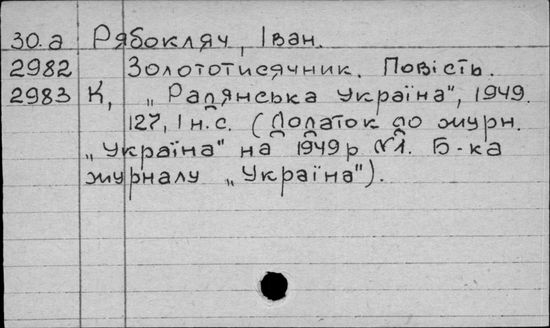 30.а Рябокляч, Іван.
2982 Золототисячник. Повість.
2983 К, „Радянська Україна", 1949.
127, 1 н.с. (Додаток до журн.
„Україна" на 1949 р №1. Б-ка
журналу „Україна").